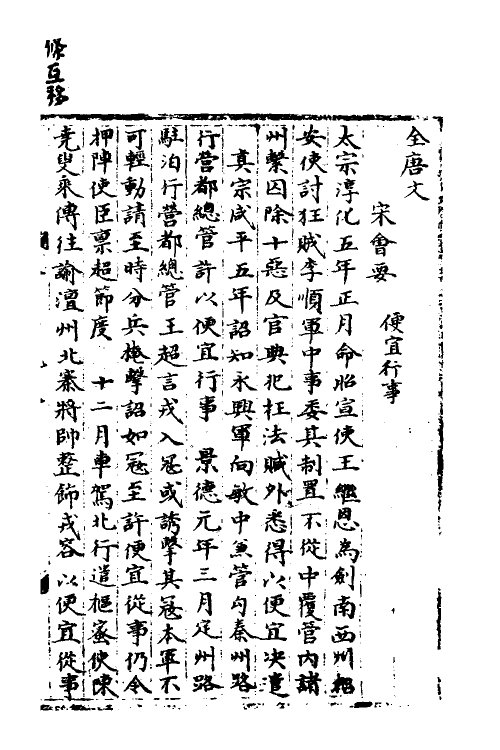 條互移
全唐文
宋會要
便宜行事
太宗淳化五年正月命昭宣使王繼恩為劍南西川招
安使討狂賊李順軍中事委其制置不從中覆管內諸
州繫囚除十惡及官典犯枉法贓外悉得以便宜決遣
真宗咸平五年詔知永興軍向敏中兼管勾秦州路
行營都總管許以便宜行事 景德元年三月定州路
駐泊行營都總管王超言戎入寇或誘擊其寇本軍不
可輕動請至時分兵掩擊詔如寇至許便宜從事仍令
押陣使臣稟超節度 十二月車駕北行遣樞密使陳
堯叟乘傳往諭澶州北寨將帥整飾戎容以便宜從事